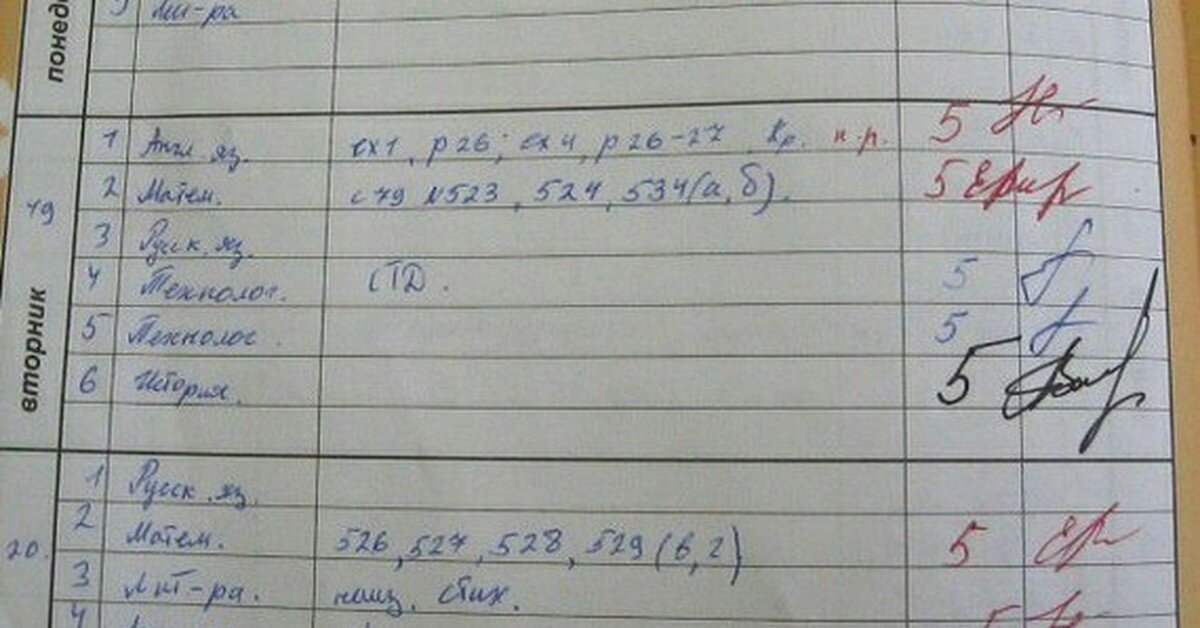 понед
5 Лит-ра
вторник
19
1 Англ яз. ex1, p26; ex4, p26-27 кр. к.р. 5
2 Матем. с 79 №523, 524, 534(а, б). 5
3 Русск. яз.
4 Технолог. СТД. 5
5 Технолог. 5
6 История. 5
20.
1 Русск. яз.
2 Матем. 526, 527, 528, 529 (в, г) 5
3 Лит-ра. наиз. стих.
4 5